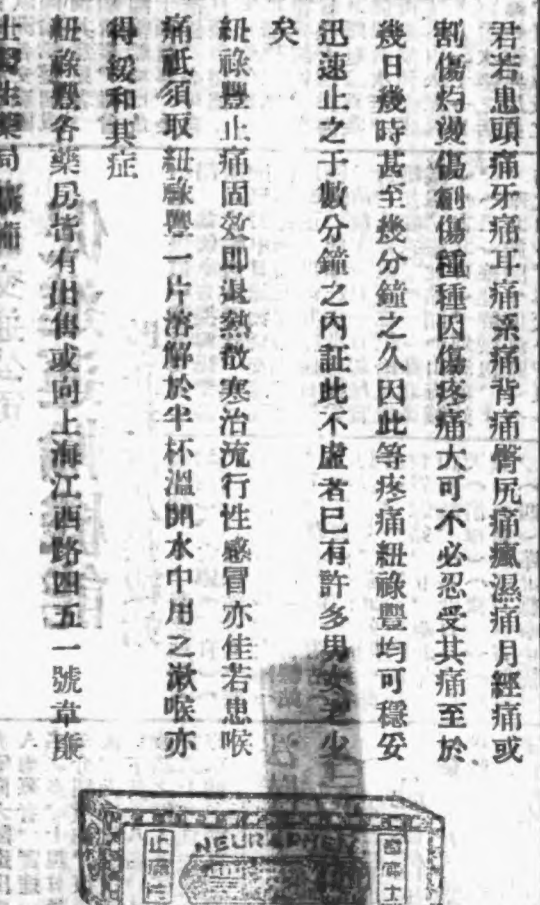 君若患頭痛牙痛耳痛系痛背痛臀尻痛瘋濕痛月經痛或
割傷灼燙傷創傷種種因傷疼痛大可不必忍受其痛至於
幾日幾時甚至幾分鐘之久因此等疼痛紐祿豐均可穩妥
迅速止之于數分鐘之內証此不虛者已有許多男女老少
矣
紐祿豐止痛固效即退熱散寒治流行性感冒亦佳若患喉
痛祗須取紐祿豐一片溶解於半杯溫開水中用之漱喉亦
得緩和其症
紐祿豐各藥房皆有出售或向上海江西路四五一號韋廉
士醫生藥局
止痛
NEURAPHEN
士